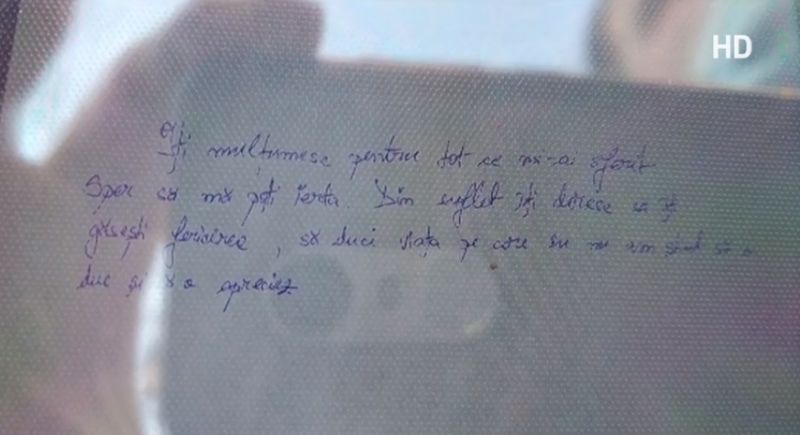 HD
Îți mulțumesc pentru tot ce mi-ai oferit
Sper să mă poți ierta. Din suflet îți doresc să îți
găsești fericirea, să duci viața pe care eu nu am știut să o
duc și să o apreciez